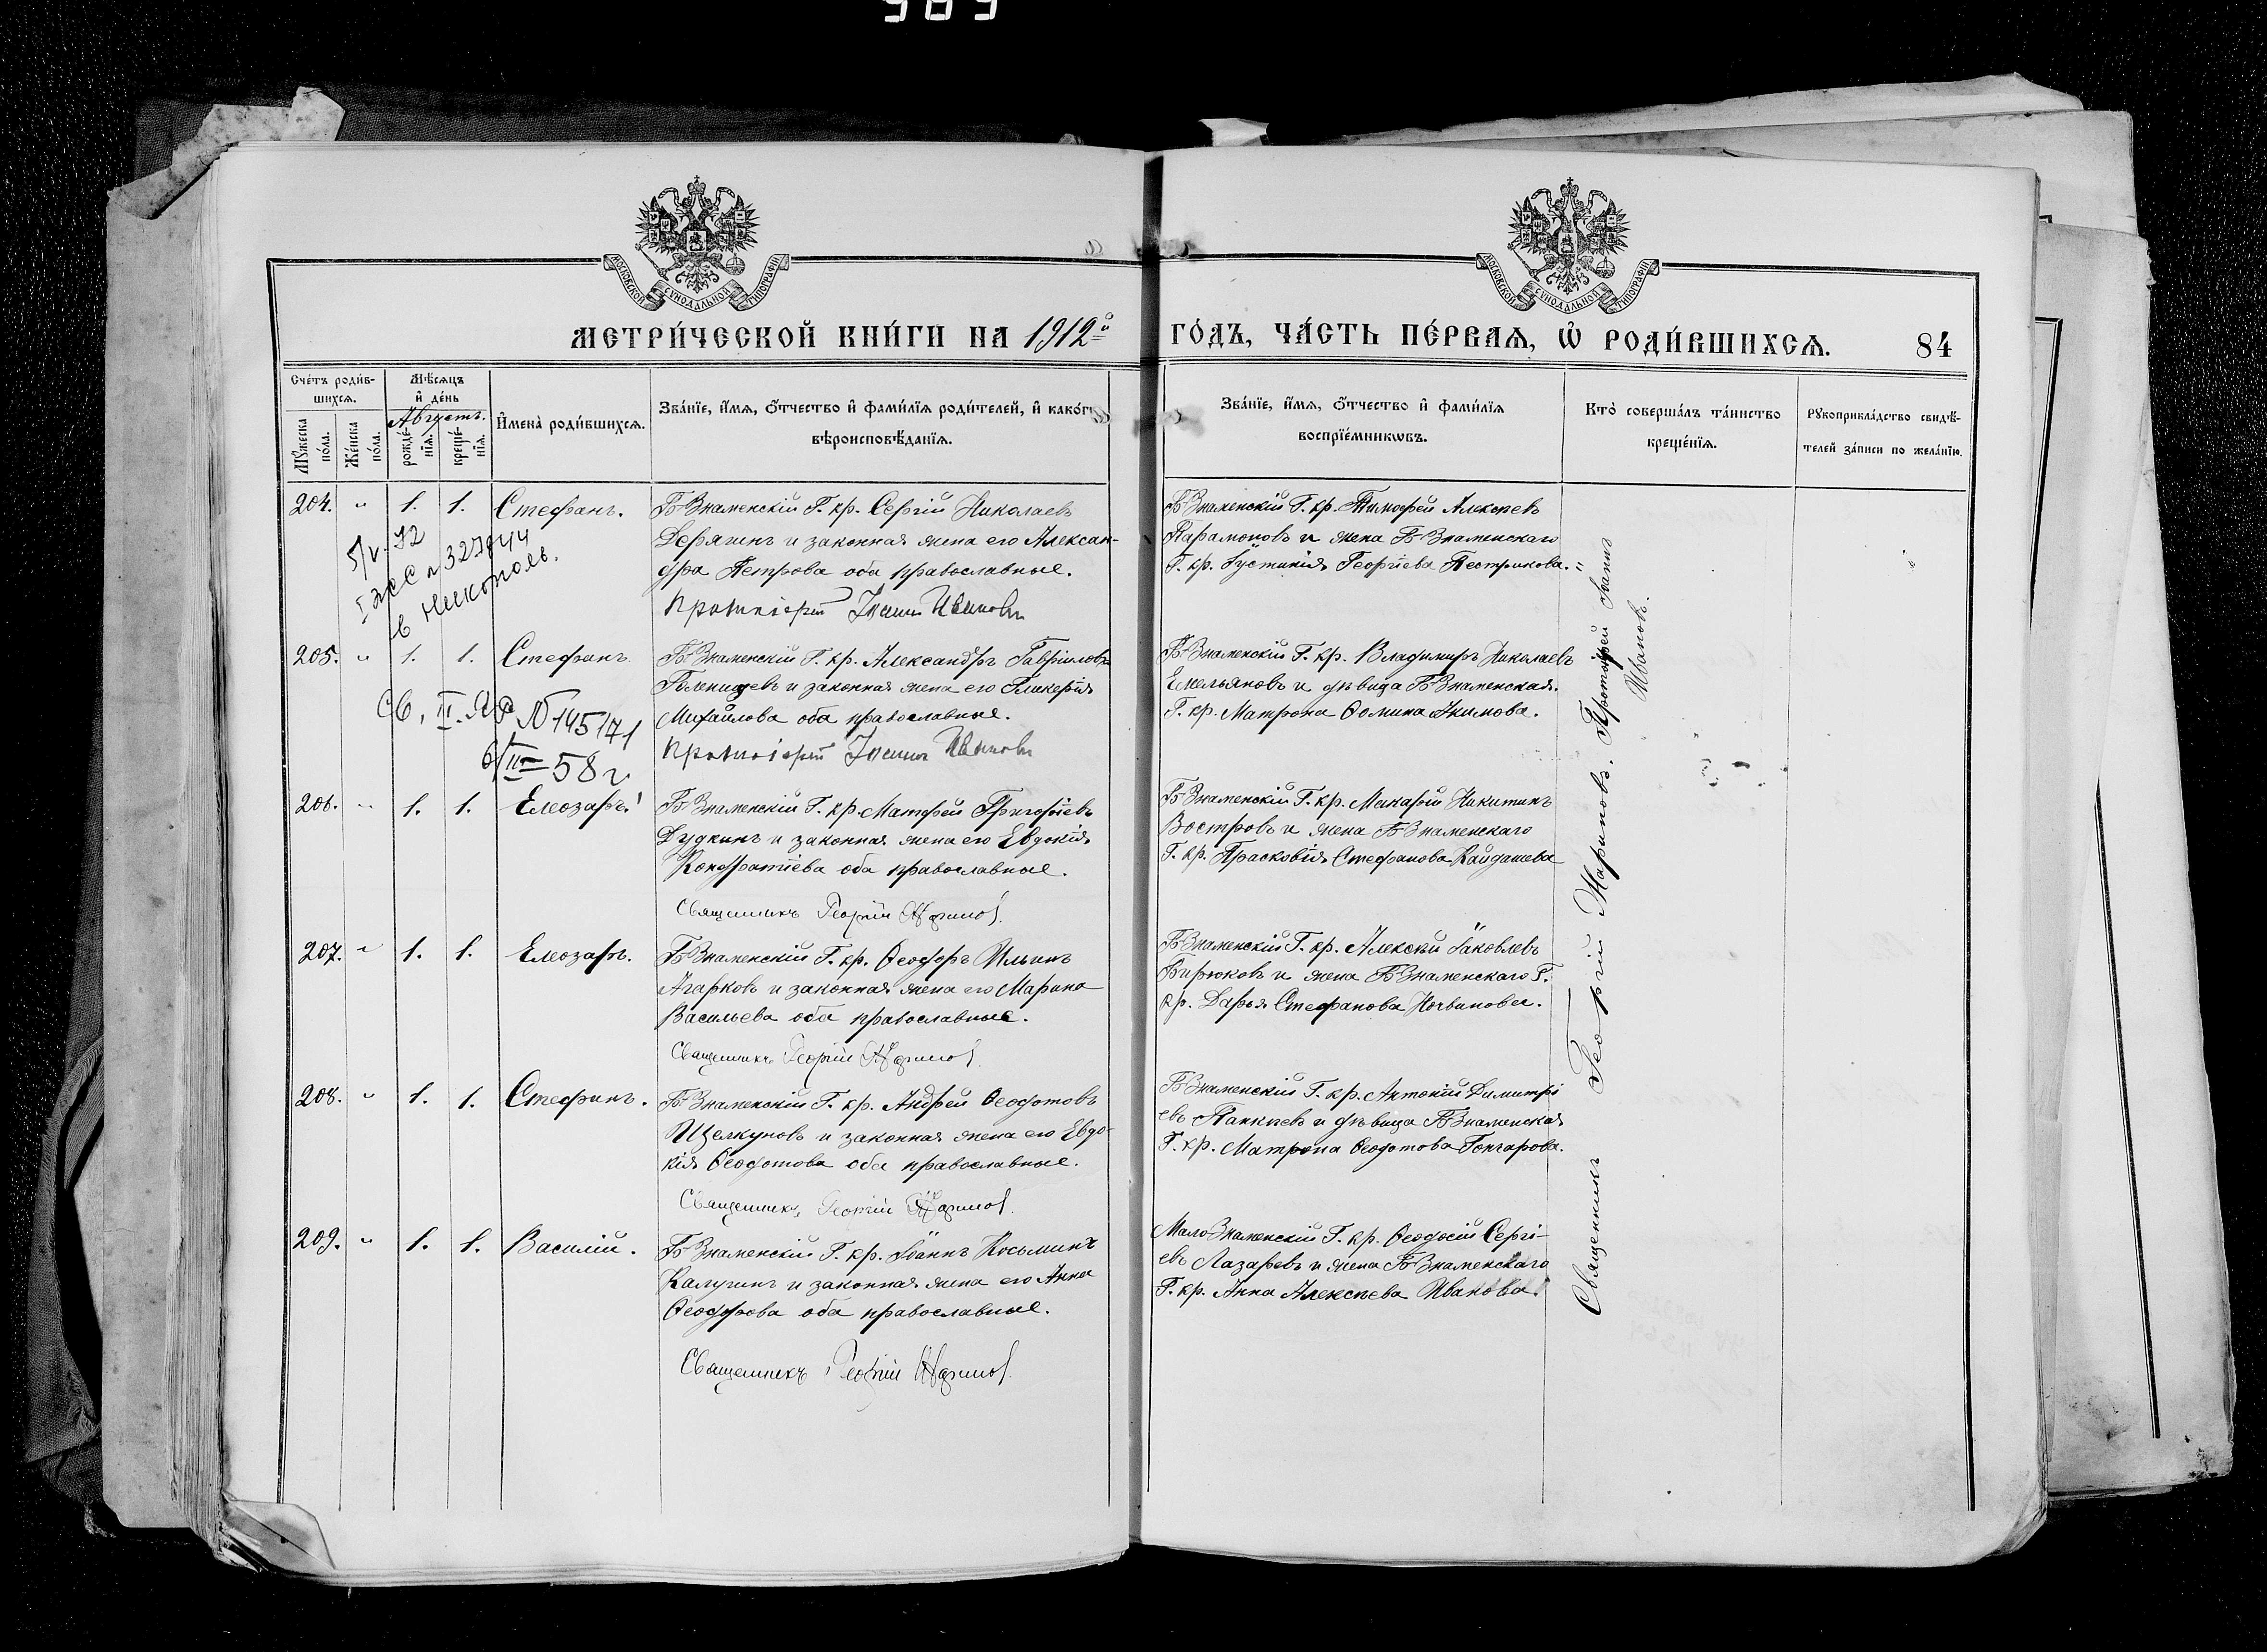 989
МОСКОВСКОЙ СѴНОДАЛЬНОЙ ТИПОГРАФІИ
МОСКОВСКОЙ СѴНОДАЛЬНОЙ ТИПОГРАФІИ
МЕТРИ́ЧЕСКОЙ КНИ́ГИ НА 1912й
ГО́ДЪ, ЧА́СТЬ ПЕ́РВАѦ, Ѡ҆ РОДИ́ВШИХСѦ. 84
Сче́тъ роди́в-
шихсѧ.
Мꙋжеска
по́ла.
Же́нска
по́ла.
Мѣ́сѧцъ
и҆ де́нь
Августъ.
рожде́-
нїѧ.
креще́-
нїѧ.
И҆мена̀ роди́вшихсѧ.
Зва́нїе, и҆́мѧ, ѻ҆́тчество и҆ фами́лїѧ роди́телей, и҆ како́гѡ
вѣроисповѣ́данїѧ.
Зва́нїе, и҆́мѧ, ѻ҆́тчество и҆ фами́лїѧ
воспрїе́мникѡвъ.
Кто̀ соверша́лъ та́инство
креще́нїѧ.
Рꙋкоприкла́дство свидѣ́-
телей за́писи по жела́нїю.
204. " 1. 1. Стефанъ.
Б-Знаменскій Г. кр. Сергій Николаевъ
Дерягинъ и законная жена его Алексан-
дра Петрова оба православные.
Протоіерей Іоаннъ Ивановъ
Б-Знаменскій Г. кр. Тимофей Алексѣевъ
Парамоновъ и жена Б-Знаменскаго
Г. кр. Іустинія Георгіева Пестрикова.
в Никополь.
205. " 1. 1. Стефанъ
Б-Знаменскій Г. кр. Александръ Гавриловъ
и законная жена его Гликерія
Михайлова оба православные.
Протоіерей Іоаннъ Ивановъ
Б-Знаменскій Г. кр. Владимиръ Николаевъ
Емельяновъ и дѣвица Б-Знаменская
Г. кр. Матрона Ѳомина Якимова.
Св. II. ЯР № 145171
6/II-58 г.
206. " 1. 1. Елеозаръ.
Б-Знаменскій Г. кр. Матфей Григоріевъ
Дудкинъ и законная жена его Евдокія
Кондратіева оба православные.
Священникъ Георгій
Б-Знаменскій Г. кр. Макарій Никитинъ
Востровъ и жена Б-Знаменскаго
Г. кр. Прасковія Стефанова Кайдашева
207. " 1. 1. Елеозаръ.
Б-Знаменскій Г. кр. Ѳеодоръ Ильинъ
Агарковъ и законная жена его Марина
Васильева оба православные.
Священникъ Георгій
Б-Знаменскій Г. кр. Алексѣй Іаковлевъ
Бирюковъ и жена Б-Знаменскаго Г.
кр. Дарья Стефанова
208. " 1. 1. Стефанъ.
Б-Знаменскій Г. кр. Андрей Ѳеодотовъ
Щелкуновъ и законная жена его Евдо-
кія Ѳеодотова оба православные.
Священникъ Георгій
Б-Знаменскій Г. кр. Антоній Димитрі
евъ и дѣвица Б-Знаменская
Г. кр. Матрона Ѳеодотова Гончарова.
209. " 1. 1. Василій.
Б-Знаменскій Г. кр. Іоаннъ Косьминъ
Калугинъ и законная жена его Анна
Ѳеодорова оба православные.
Священникъ Георгій
Мало Знаменскій Г. кр. Ѳеодосій Сергі-
евъ Лазаревъ и жена Б-Знаменскаго
Г. кр. Анна Алексѣева Иванова.
Священникъ Георгій Протоіерей Іоаннъ
Ивановъ.